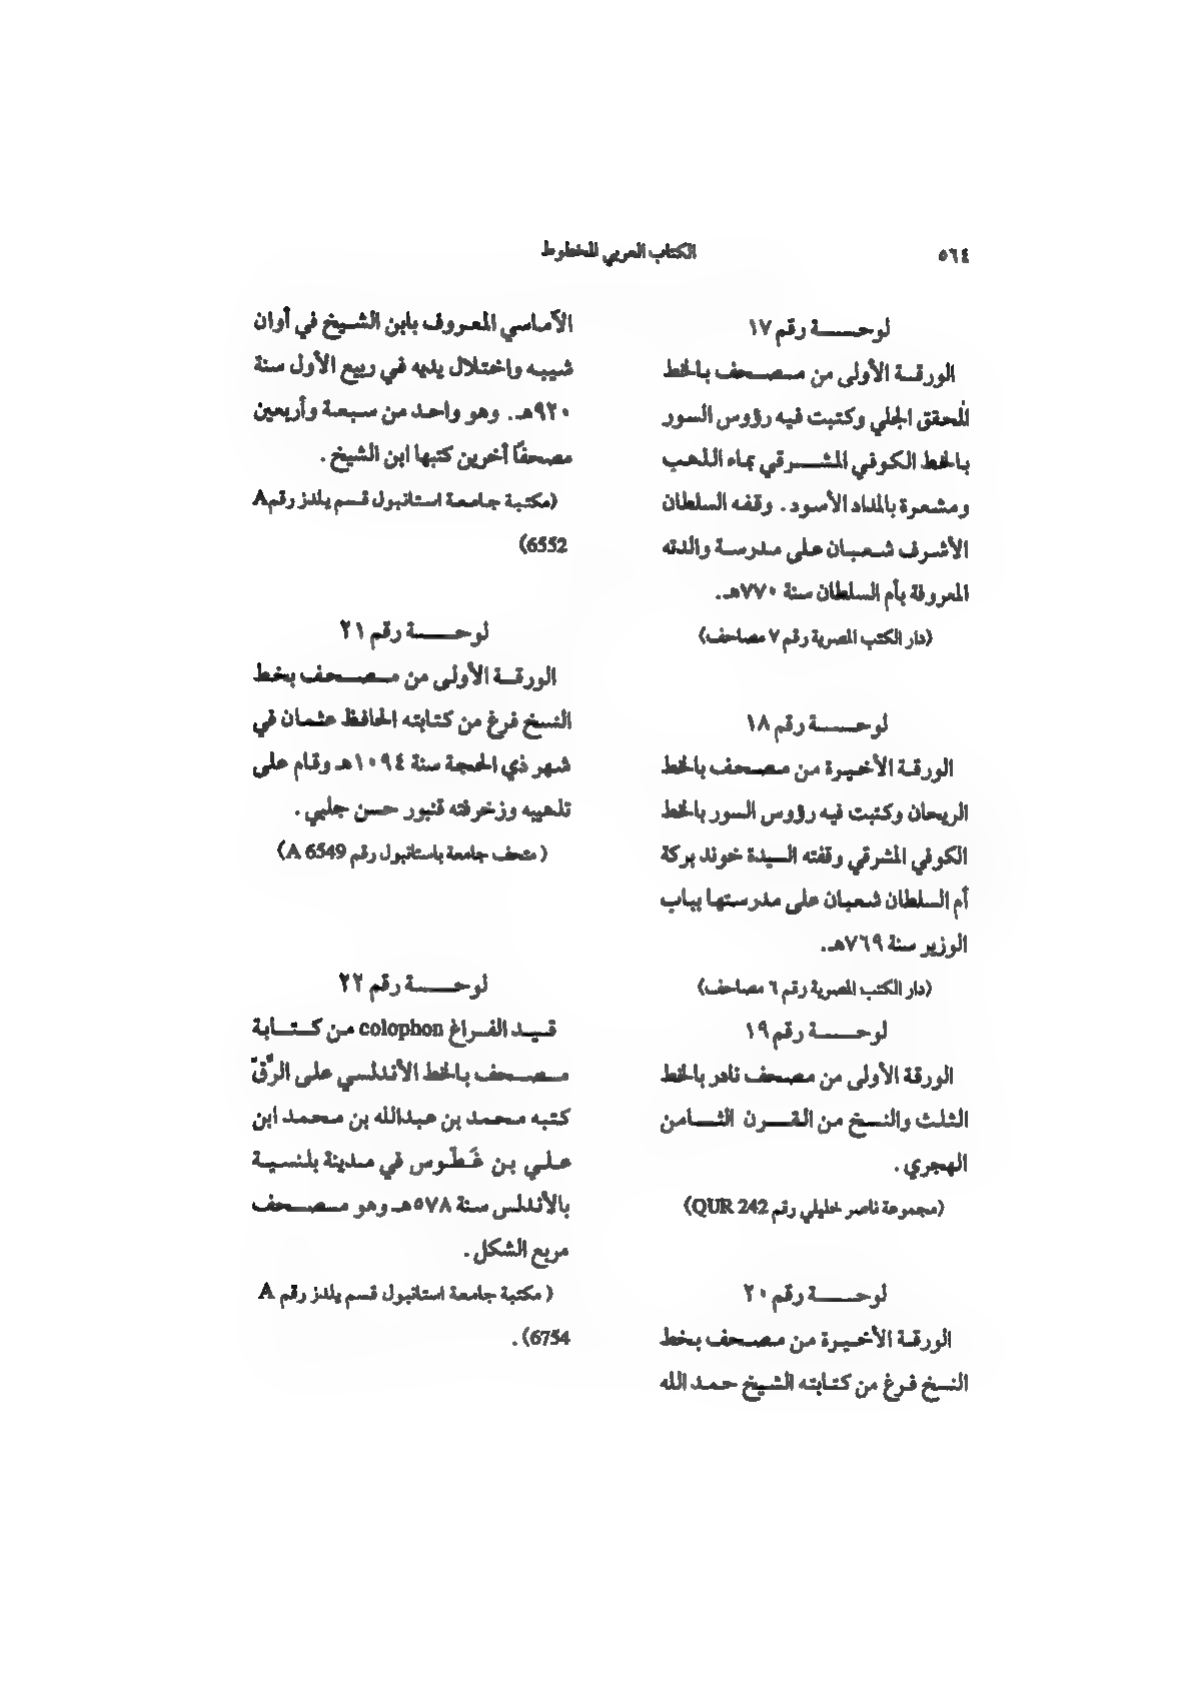 ٥٦٤
الكتاب العربي المخطوط
لوحـــــة رقم ١٧
الورقــة الأولى من مـصـــحف بـالخط
المُحقق الجلي وكـتـبت فيـه رؤوس الـسور
بـالخط الكـوفـي المشــــرقي بمـاء الـذهـب
ومشعرة بالمداد الأسود. وقفـه السلطان
الأشـرف شـعـبـان على مـدرسـة والدته
المعروفة بأم السلطان سنة ٧٧٠هـ.
(دار الكتب المصرية رقم ٧ مصاحف)
لوحـــــة رقم ١٨
الورقـة الأخـيـرة من مـصـحف بالخط
الريحان وكتبت فيه رؤوس السور بالخط
الكوفي المشرقي وقفته السيدة خوند بركة
أم السلطان شعبان على مدرستها بباب
الوزير سنة ٧٦٩هـ.
(دار الكتب المصرية رقم ٦ مصاحف)
لوحـــــة رقم ١٩
الورقة الأولى من مصحف نادر بالخط
الثلث والنسخ من القـــرن الثـــامن
الهجري.
(مجموعة ناصر خليلي رقم QUR 242)
لوحـــــة رقم ٢٠
الورقـة الأخـيـرة من مـصـحف بـخط
النسخ فـرغ من كـتـابته الشيخ حـمـد الله
الآماسي المعروف بابن الشـيخ في أوان
شيبـه واختـلال يديه في ربيع الأول سنة
٩٢٠هـ. وهو واحد من سـبعـة وأربعين
مصحفًا أخرين كتبها ابن الشيخ.
(مكتـبـة جـامـعـة اسـتانبـول قـسم يلدز رقمA
6552)
لوحـــــة رقم ٢١
الورقــة الأولى من مــصـــحف بـخط
النسخ فرغ من كتابته الحافظ عثمان في
شهر ذي الحجة سنة ١٠٩٤هـ وقام على
تذهيبه وزخرفته قنبور حسن جلبي.
( متحف جامعة باستانبول رقم A 6549)
لوحـــــة رقم ٢٢
قـيـد الفـراغ colophon من كـتـابة
مـصـــحف بـالخط الأندلسي على الرِّقّ
كتبه محمد بن عبدالله بن محمد ابن
عـلي بن غَـطّـوس في مـدينة بلنسيـة
بالأندلس سنة ٥٧٨هـ وهو مـصـــحف
مربع الشكل.
( مكتبة جامعة استانبول قسم يلدز رقم A
6754).